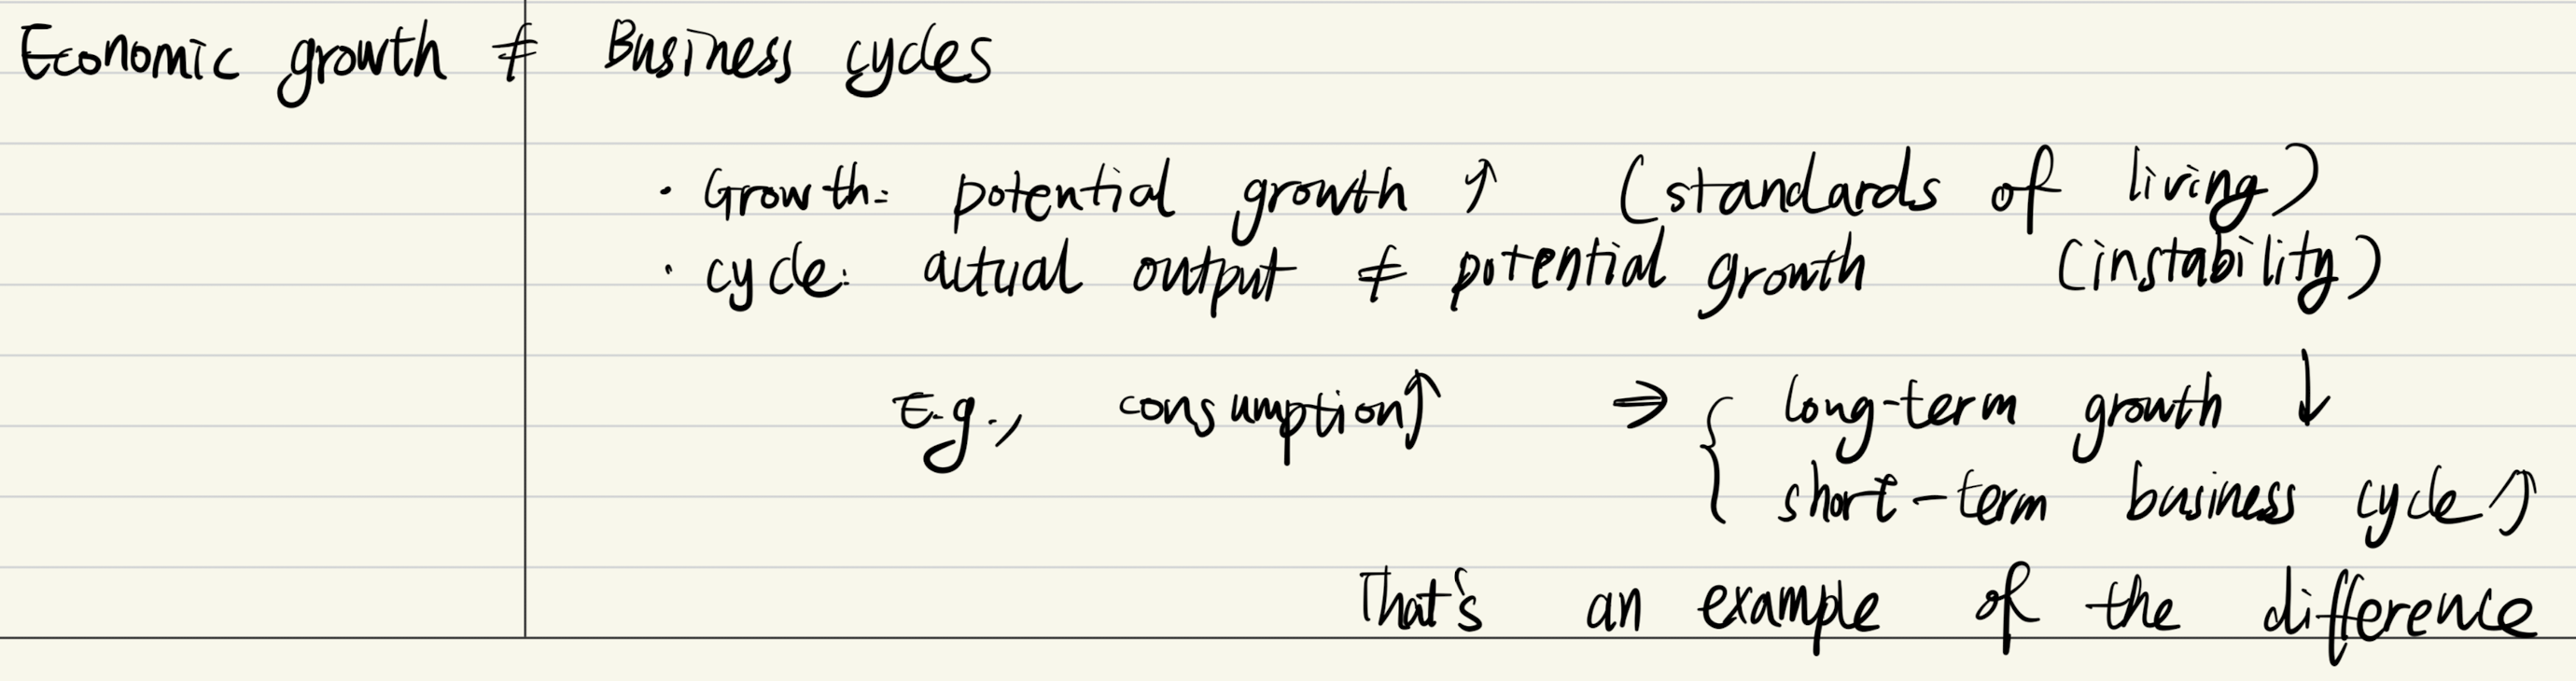 Economic growth ≠ Business cycles
· Growth: potential growth ↑ (standards of living)
· cycle: actual output ≠ potential growth (instability)
E.g., consumption↑ ⇒ { long-term growth ↓
short-term business cycle ↑
That's an example of the difference